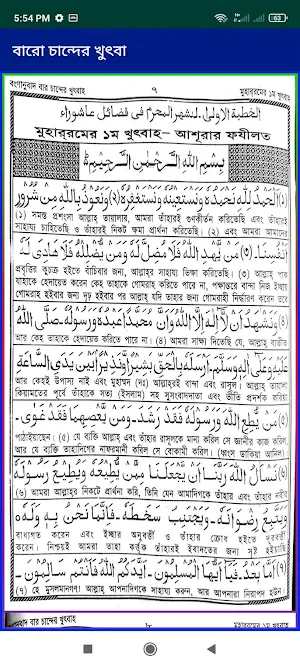 5:54 PM
63
বারো চান্দের খুৎবা
বংগানুবাদ বার চান্দের খুৎবাহ ৭ মুহাররমের ১ম খুৎবাহ
الخطبة الاولى لشهر المحرم في فضائل عاشوراء
মুহাররমের ১ম খুৎবাহ- আশূরার ফযীলত
بِسْمِ اللهِ الرَّحْمٰنِ الرَّحِيْمِ
(১) اَلْحَمْدُ لِلّٰهِ نَحْمَدُهٗ وَنَسْتَعِيْنُهٗ وَنَسْتَغْفِرُهٗ (২) وَنَعُوْذُ بِاللهِ مِنْ شُرُوْرِ
(১) সমস্ত প্রশংসা আল্লাহ্ তায়ালার, আমরা তাঁহারই গুণকীর্তন করিতেছি এবং তাঁহারই
সাহায্য চাহিতেছি ও তাঁহারই নিকট ক্ষমা প্রার্থনা করিতেছি। (২) এবং আমরা আমাদের
اَنْفُسِنَا- (৩) مَنْ يَّهْدِ اللهُ فَلَا مُضِلَّ لَهٗ وَمَنْ يُّضْلِلْهُ فَلَا هَادِىَ لَهٗ-
প্রবৃত্তির কুচক্র হইতে বাঁচিবার জন্য, আল্লাহর সাহায্য ভিক্ষা করিতেছি। (৩) আল্লাহ্ পাক
যাহাকে হেদায়েত করেন কেহ তাহাকে গোমরাহ করিতে পারে না, পক্ষান্তরে বান্দা নিজ ইচ্ছায়
গোমরাহ হইবার জন্য দৃঢ় হইবার পর আল্লাহ্ যদি তাহার জন্য গোমরাহী নির্ধারণ করেন তবে
وَنَشْهَدُ اَنْ لَّا اِلٰهَ اِلَّا اللهُ وَاَنَّ مُحَمَّدًا عَبْدُهٗ وَرَسُوْلُهٗ- صَلَّى اللهُ
আর কেহ তাহাকে হেদায়েত করিতে পারে না। (৪) আমরা সাক্ষ্য দিতেছি যে, আল্লাহ্ ব্যতীত
عَلَيْهِ وَعَلٰى اٰلِهٖ وَسَلَّمَ- اَرْسَلَهٗ بِالْحَقِّ بَشِيْرًا وَّنَذِيْرًا بَيْنَ يَدَىِ السَّاعَةِ
আর কেহই উপাস্য নাই এবং মুহাম্মদ (দঃ) আল্লাহরই বান্দা এবং রাসূল। আল্লাহ্ তায়ালা
কিয়ামতের পূর্বে তাঁহাকে সত্য (ইসলাম) সহ সুসংবাদদাতা এবং ভীতি প্রদর্শক করিয়া
(৫) مَنْ يُّطِعِ اللهَ وَرَسُوْلَهٗ فَقَدْ رَشَدَ- وَمَنْ يَّعْصِهِمَا فَقَدْ غَوٰى-
পাঠাইয়াছেন। (৫) যে ব্যক্তি আল্লাহ্ এবং তাঁহার রাসূলকে মান্য করিল সে জ্ঞানীর কাজ করিল
আর যে ব্যক্তি তাহাদিগের নাফরমানী করিল সে বোকামী করিল।
نَسْأَلُ اللهَ رَبَّنَا اَنْ يَّجْعَلَنَا مِمَّنْ يُّطِيْعُهٗ وَيُطِيْعُ رَسُوْلَهٗ
(৬) আমরা আল্লাহর নিকটে প্রার্থনা করি, তিনি যেন আমাদিগকে তাঁহার এবং তাঁহার নবীর
وَيَتَّبِعُ رِضْوَانَهٗ- وَيَجْتَنِبُ سَخَطَهٗ- فَاِنَّمَا نَحْنُ بِهٖ وَلَهٗ
বাধ্যগত করেন এবং ইচ্ছার অনুবর্তী ও তাঁহার ক্রোধ হইতে দূরবর্তী
করেন। নিশ্চয়ই আমরা তাঁহা কর্তৃক তাঁহারই ইবাদতের জন্য সৃষ্ট হইয়াছি
(৭) اَمَّا بَعْدُ- فَيَا اَيُّهَا الْمُسْلِمُوْنَ- اَيَّدَكُمُ اللهُ فَاَنْتُمْ سَالِمُوْنَ-
(৭) হে মুসলমানগণ! আল্লাহ্ আপনাদিগকে সাহায্য করুন, আর আপনারা নিরাপদ হউন
বার চান্দের খুৎবাহ ৮ মুহাররমের ১ম খুৎবাহ